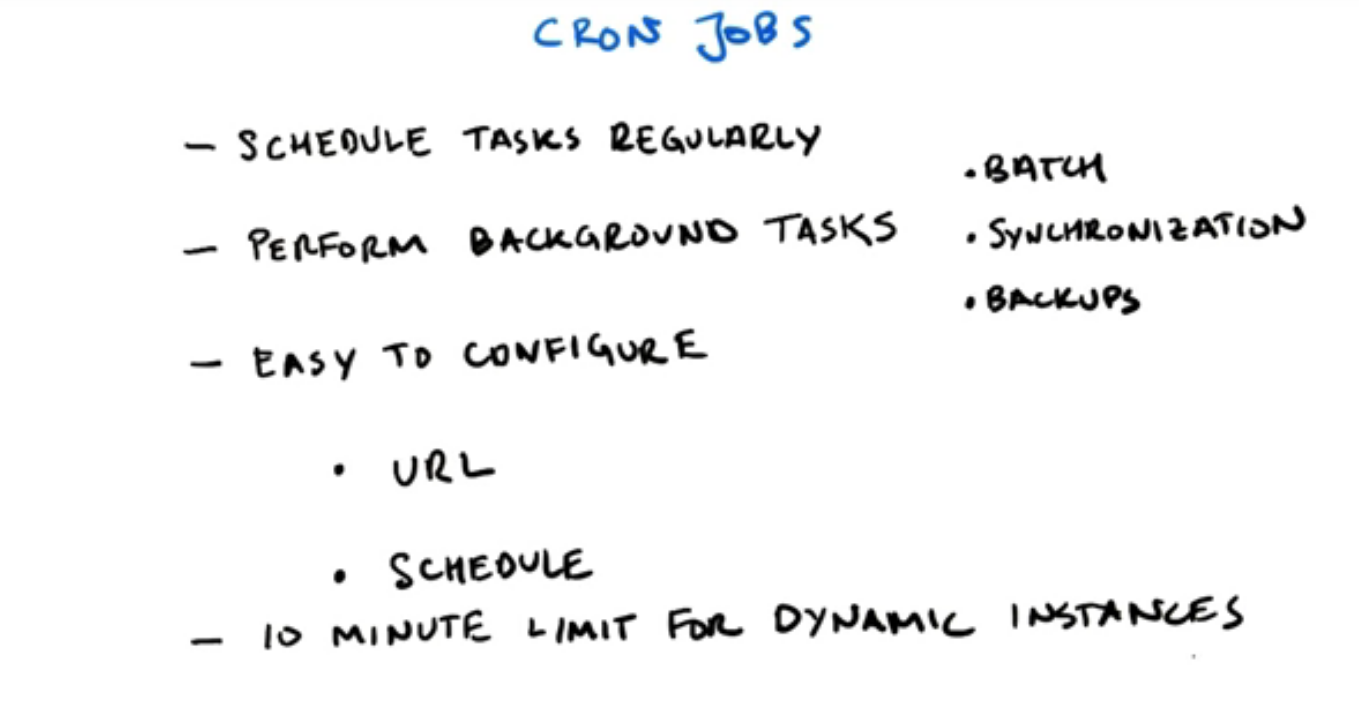 CRON JOBS
- SCHEDULE TASKS REGULARLY
- PERFORM BACKGROUND TASKS
• BATCH
• SYNCHRONIZATION
• BACKUPS
- EASY TO CONFIGURE
• URL
• SCHEDULE
- 10 MINUTE LIMIT FOR DYNAMIC INSTANCES